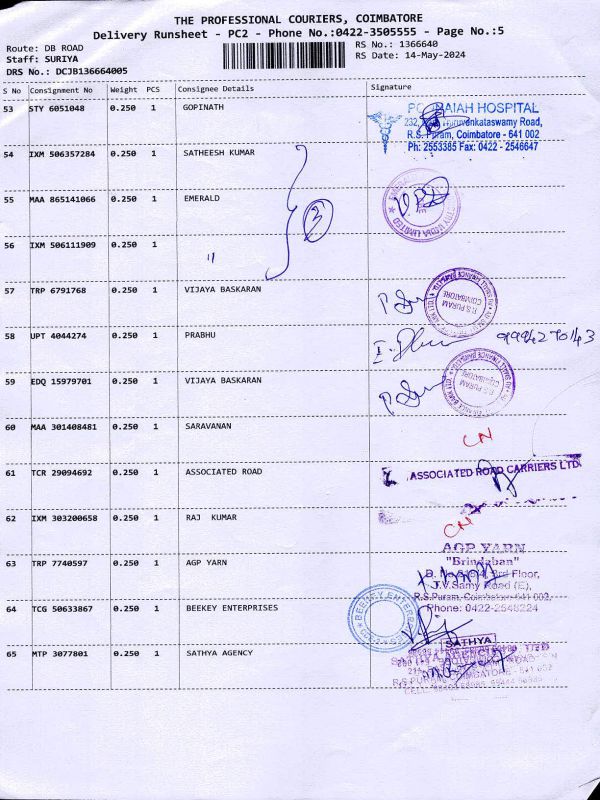 THE PROFESSIONAL COURIERS, COIMBATORE
Delivery Runsheet - PC2 - Phone No.:0422-3505555 - Page No.:5
Route: DB ROAD
Staff: SURIYA
DRS No.: DCJB136664005
RS No.: 1366640
RS Date: 14-May-2024
S No Consignment No Weight PCS Consignee Details Signature
53 STY 6051048 0.250 1 GOPINATH
HOSPITAL
R.S. Puram, Coimbatore - 641 002
Ph: 2553385 Fax: 0422 - 2546647
54 IXM 506357284 0.250 1 SATHEESH KUMAR
55 MAA 865141066 0.250 1 EMERALD
3
56 IXM 506111909 0.250 1 "
57 TRP 6791768 0.250 1 VIJAYA BASKARAN
R.S. PURAM
COIMBATORE
58 UPT 4044274 0.250 1 PRABHU
59 EDQ 15979701 0.250 1 VIJAYA BASKARAN
R.S. PURAM
COIMBATORE
60 MAA 301408481 0.250 1 SARAVANAN CN
61 TCR 29094692 0.250 1 ASSOCIATED ROAD ASSOCIATED ROAD CARRIERS LTD
62 IXM 303200658 0.250 1 RAJ KUMAR CN
63 TRP 7740597 0.250 1 AGP YARN
AGP YARN
"Brindaban"
3rd Floor,
J.V.Samy Road (E),
R.S.Puram, Coimbatore - 641 002,
Phone: 0422-2548224
64 TCG 50633867 0.250 1 BEEKEY ENTERPRISES
BEEKEY ENTERPR
65 MTP 3077801 0.250 1 SATHYA AGENCY
SATHYA